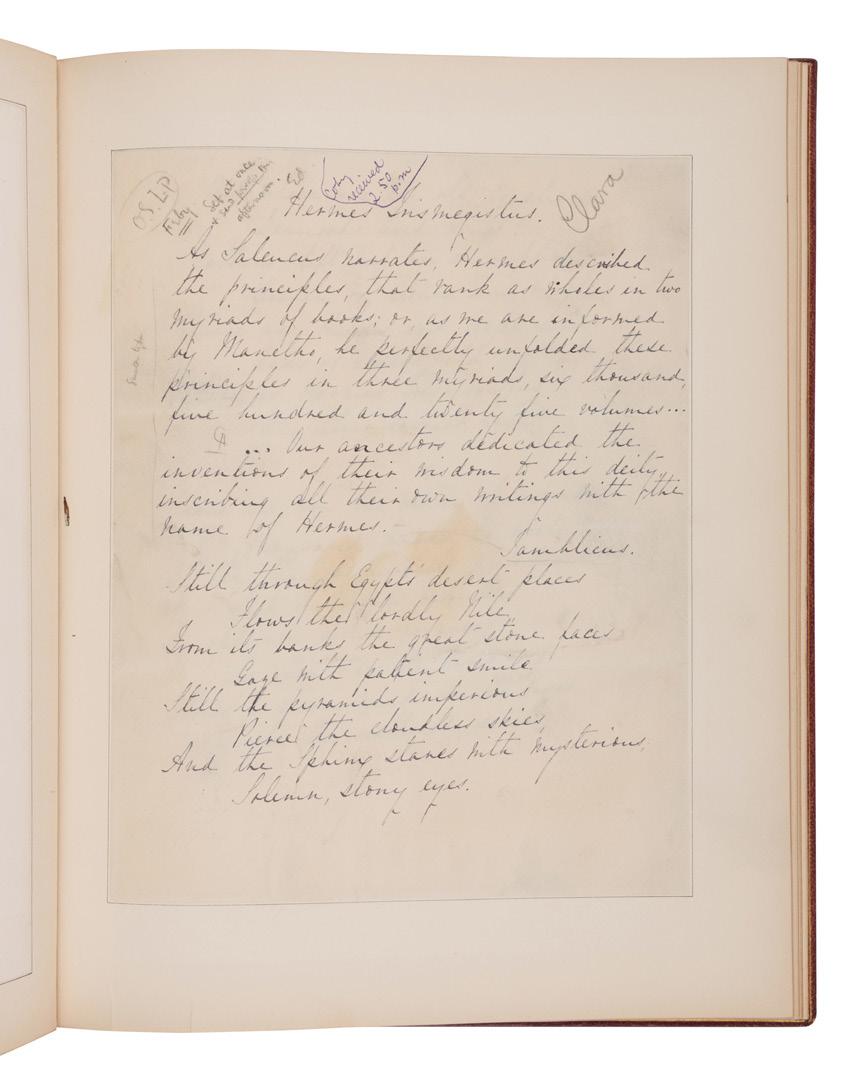 O.S. L.P
Feby
III
Set at once
& send proof this
afternoon. Ed
Copy
received
2.50
p.m
Clara
Hermes Trismegistus.
As Saleucus narrates, Hermes described
the principles, that rank as wholes in two
myriads of books; or, as we are informed
by Manetho, he perfectly unfolded these
principles in three myriads, six thousand,
five hundred and twenty five volumes...
... Our ancestors dedicated the
inventions of their wisdom to this deity,
inscribing all their own writings with the
name of Hermes.—
Iamblicus.
Still through Egypt's desert places
Flows the lordly Nile,
From its banks the great stone faces
Gaze with patient smile
Still the pyramids imperious
Pierce the cloudless skies,
And the Sphinx stares with mysterious,
Solemn, stony eyes.